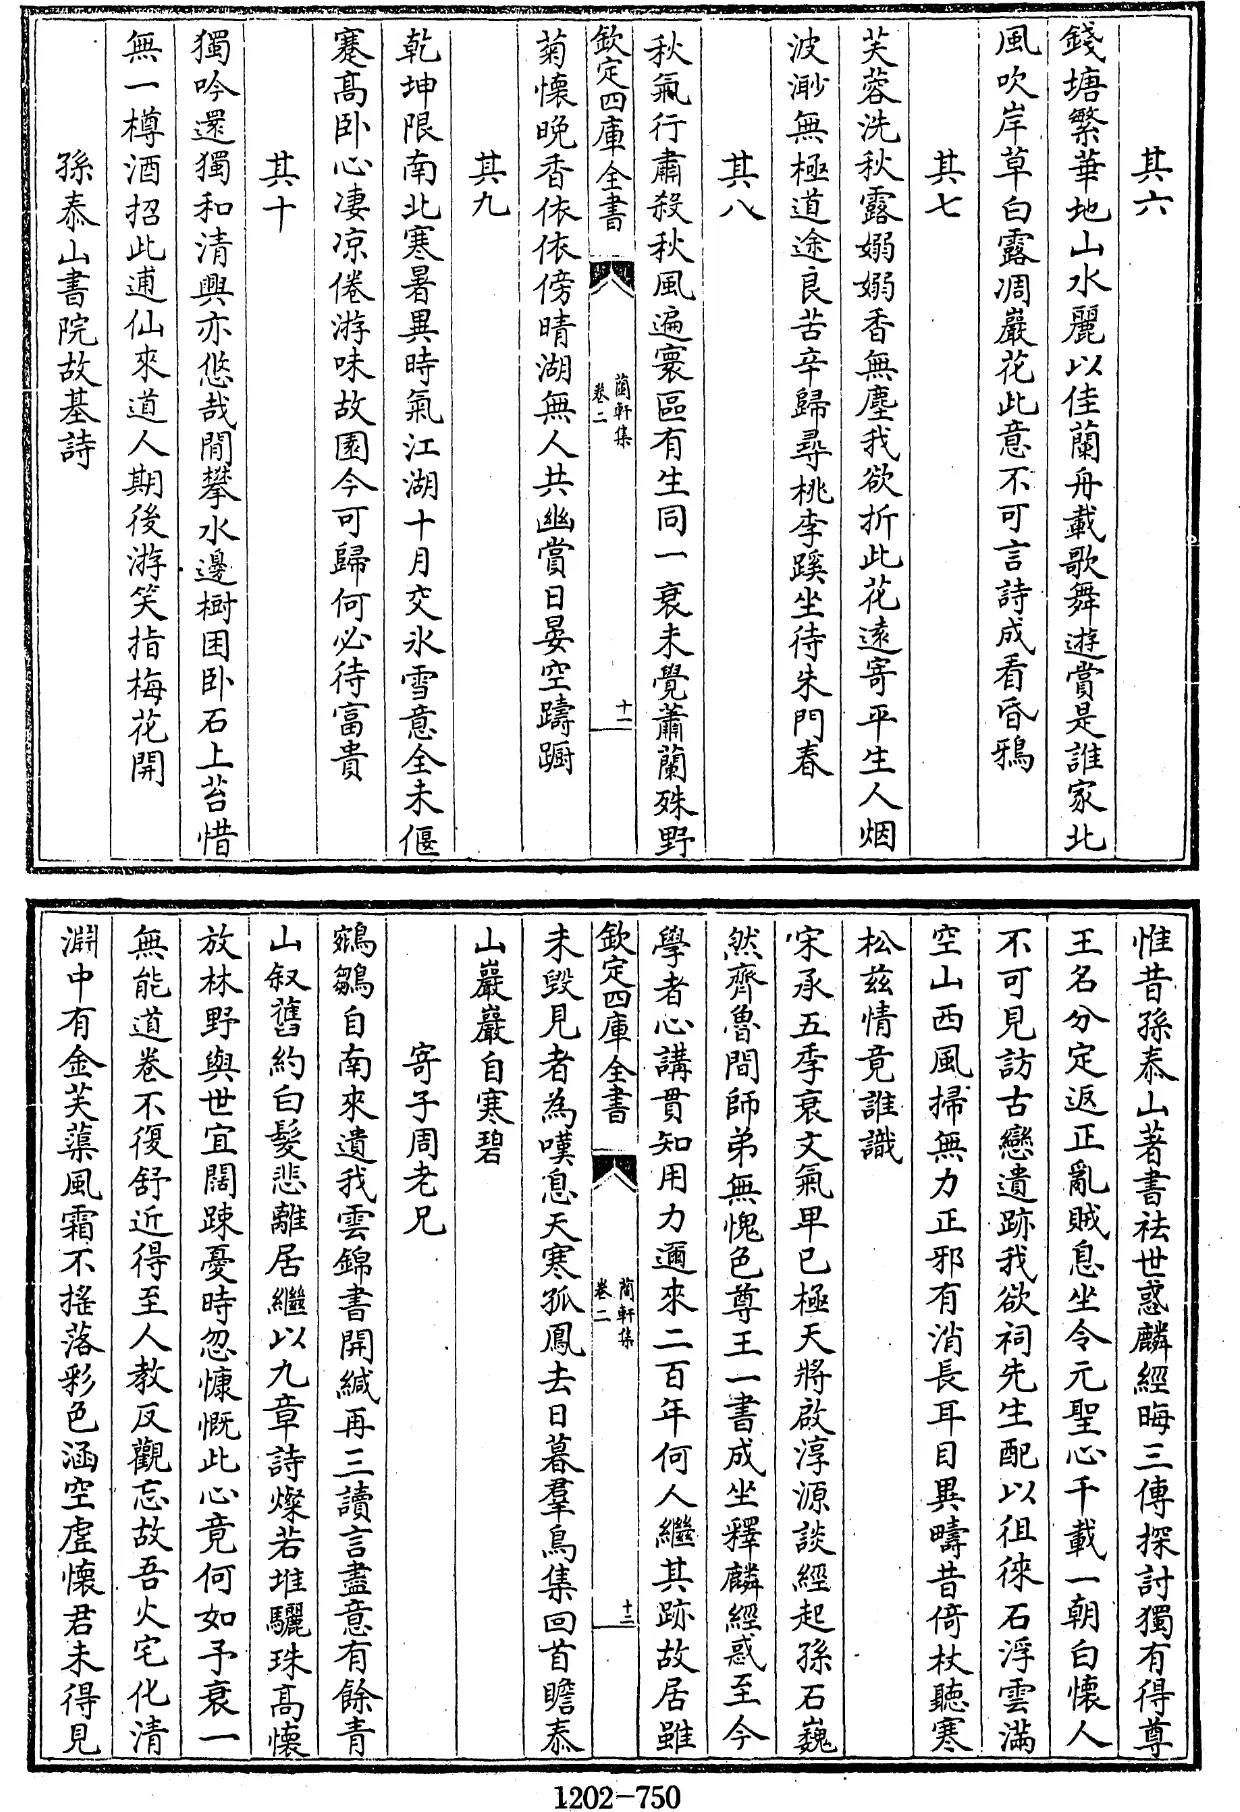 其六
錢塘繁華地山水麗以佳蘭舟載歌舞遊賞是誰家北
風吹岸草白露凋巖花此意不可言詩成看昏鴉
其七
芙蓉洗秋露嫋嫋香無塵我欲折此花遠寄平生人烟
波渺無極道途良苦辛歸尋桃李蹊坐待朱門春
其八
秋氣行肅殺秋風遍寰區有生同一衰未覺蕭蘭殊野
欽定四庫全書
蘭軒集
卷二
十一
菊懷晚香依依傍晴湖無人共幽賞日晏空躊躕
其九
乾坤限南北寒暑異時氣江湖十月交氷雪意全未偃
蹇高卧心凄凉倦游味故園今可歸何必待富貴
其十
獨吟還獨和清興亦悠哉閒攀水邊樹困卧石上苔惜
無一樽酒招此逋仙來道人期後游笑指梅花開
孫泰山書院故基詩
惟昔孫泰山著書祛世惑麟經晦三傳探討獨有得尊
王名分定返正亂賊息坐令元聖心千載一朝白懷人
不可見訪古戀遺跡我欲祠先生配以徂徠石浮雲滿
空山西風掃無力正邪有消長耳目異疇昔倚杖聽寒
松兹情竟誰識
宋承五季衰文氣卑已極天將啟淳源談經起孫石巍
然齊魯間師弟無愧色尊王一書成坐釋麟經惑至今
學者心講貫知用力邇來二百年何人繼其跡故居雖
欽定四庫全書
蘭軒集
卷二
十二
未毀見者為嘆息天寒孤鳳去日暮羣鳥集回首瞻泰
山巖巖自寒碧
寄子周老兄
鵷鶵自南來遺我雲錦書開緘再三讀言盡意有餘青
山叙舊約白髮悲離居繼以九章詩燦若堆驪珠高懷
放林野與世宜闊踈憂時忽慷慨此心竟何如予衰一
無能道卷不復舒近得至人教反觀忘故吾火宅化清
淵中有金芙蕖風霜不搖落彩色涵空虛懷君未得見
1202-750